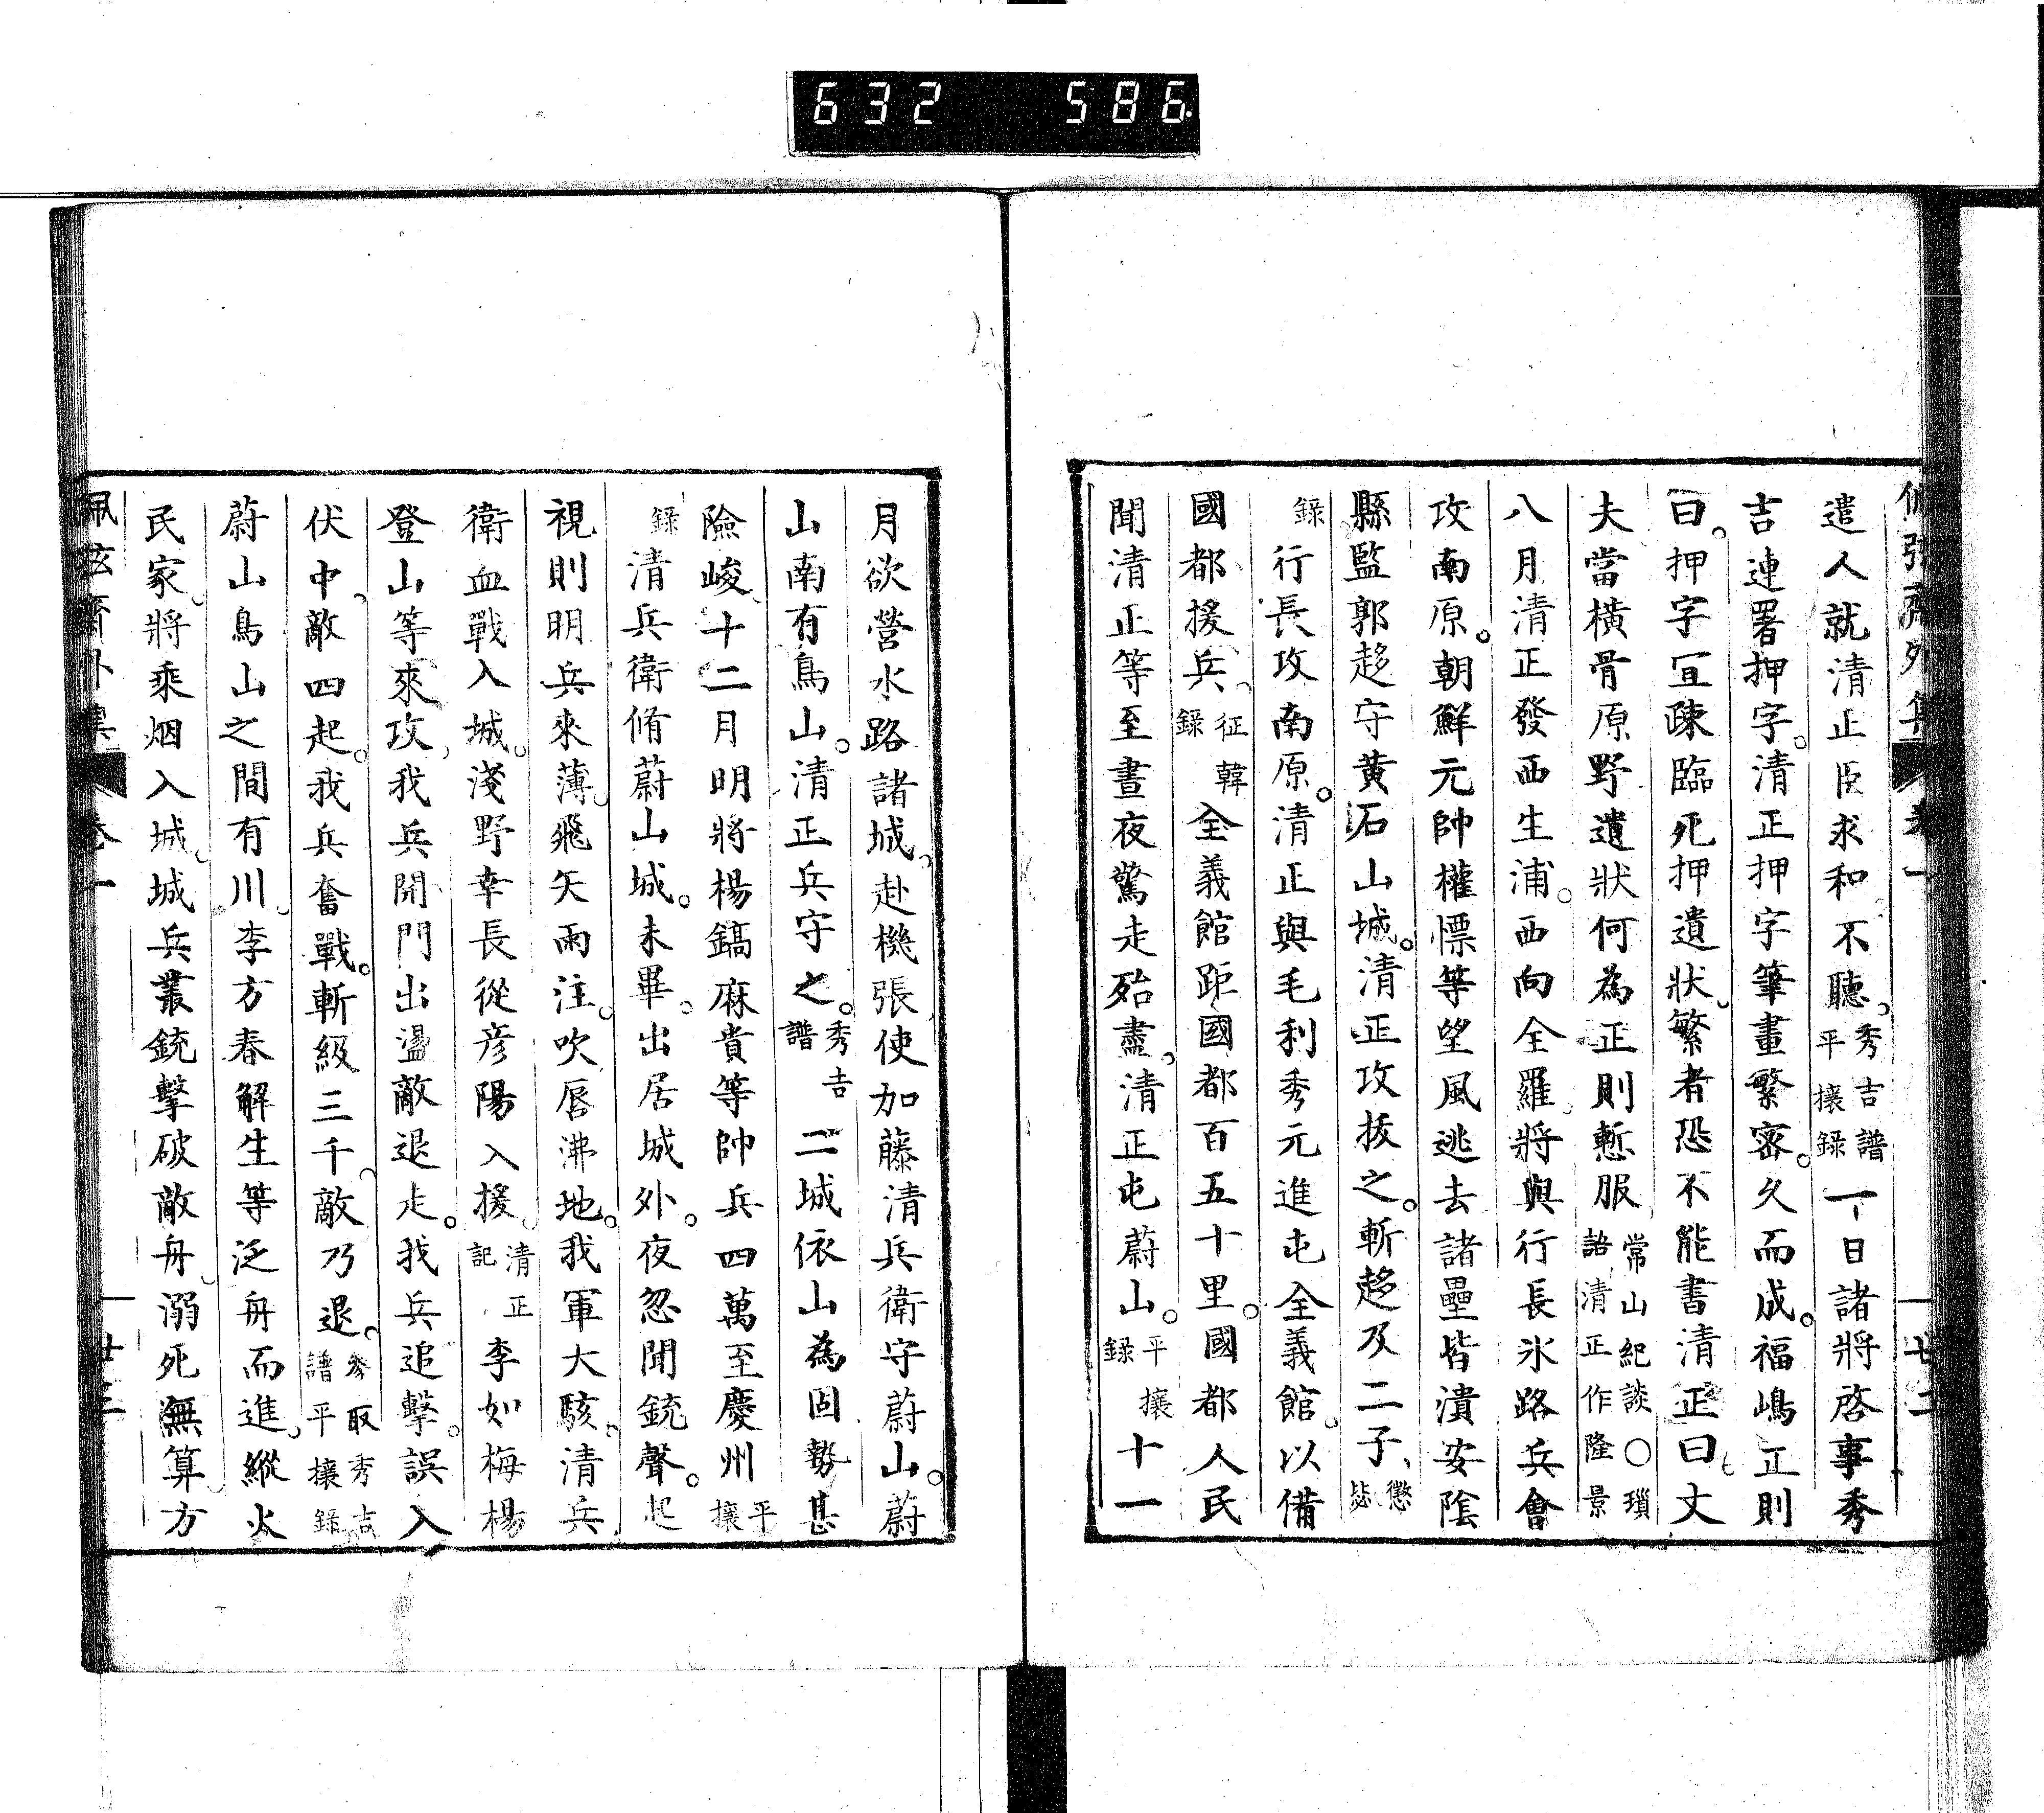 632 586
遣人就清正臣求和不聽。秀吉譜平攘録一日諸將啓事秀
吉連署押字。清正押字筆畫繁密。久而成。福嶋正則
曰。押字宜疎臨死押遺狀。繁者恐不能書清正曰丈
夫當橫骨原野遺狀何為正則慙服常山紀談〇瑣話清正作隆景
八月清正發西生浦。西向全羅。將與行長氷路兵會
攻南原。朝鮮元帥權慄等望風逃去諸壘皆潰安陰
縣監郭趁守黃石山城。清正攻拔之。斬趁及二子、懲毖
録行長攻南原。清正與毛利秀元進屯全義館。以備
國都援兵、征韓録全義館距國都百五十里。國都人民
聞清正等至晝夜驚走殆盡。清正屯蔚山。平攘録十一
月欲營水路諸城、赴機張使加藤清兵衛守蔚山。蔚
山南有鳥山。清正兵守之。秀吉譜二城依山為固勢甚
險峻十二月明將楊鎬麻貴等帥兵四萬至慶州平攘
録清兵衛脩蔚山城。未畢。出居城外。夜忽聞銃聲。起
視則明兵來薄。飛矢雨注。吹唇沸地。我軍大駭。清兵
衛血戰入城。淺野幸長從彦陽入援。清正記李如梅楊
登山等來攻、我兵開門出盪敵退走。我兵追擊。誤入
伏中、敵四起。我兵奮戰。斬級三千、敵乃退。參取秀吉譜平攘錄
蔚山鳥山之間有川、李方春解生等泛舟而進、縱火
民家、將乘烟入城、城兵叢銃擊破敵舟、溺死無算。方